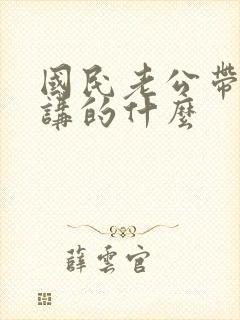 國民老公帶
講的什麼
薛雲官